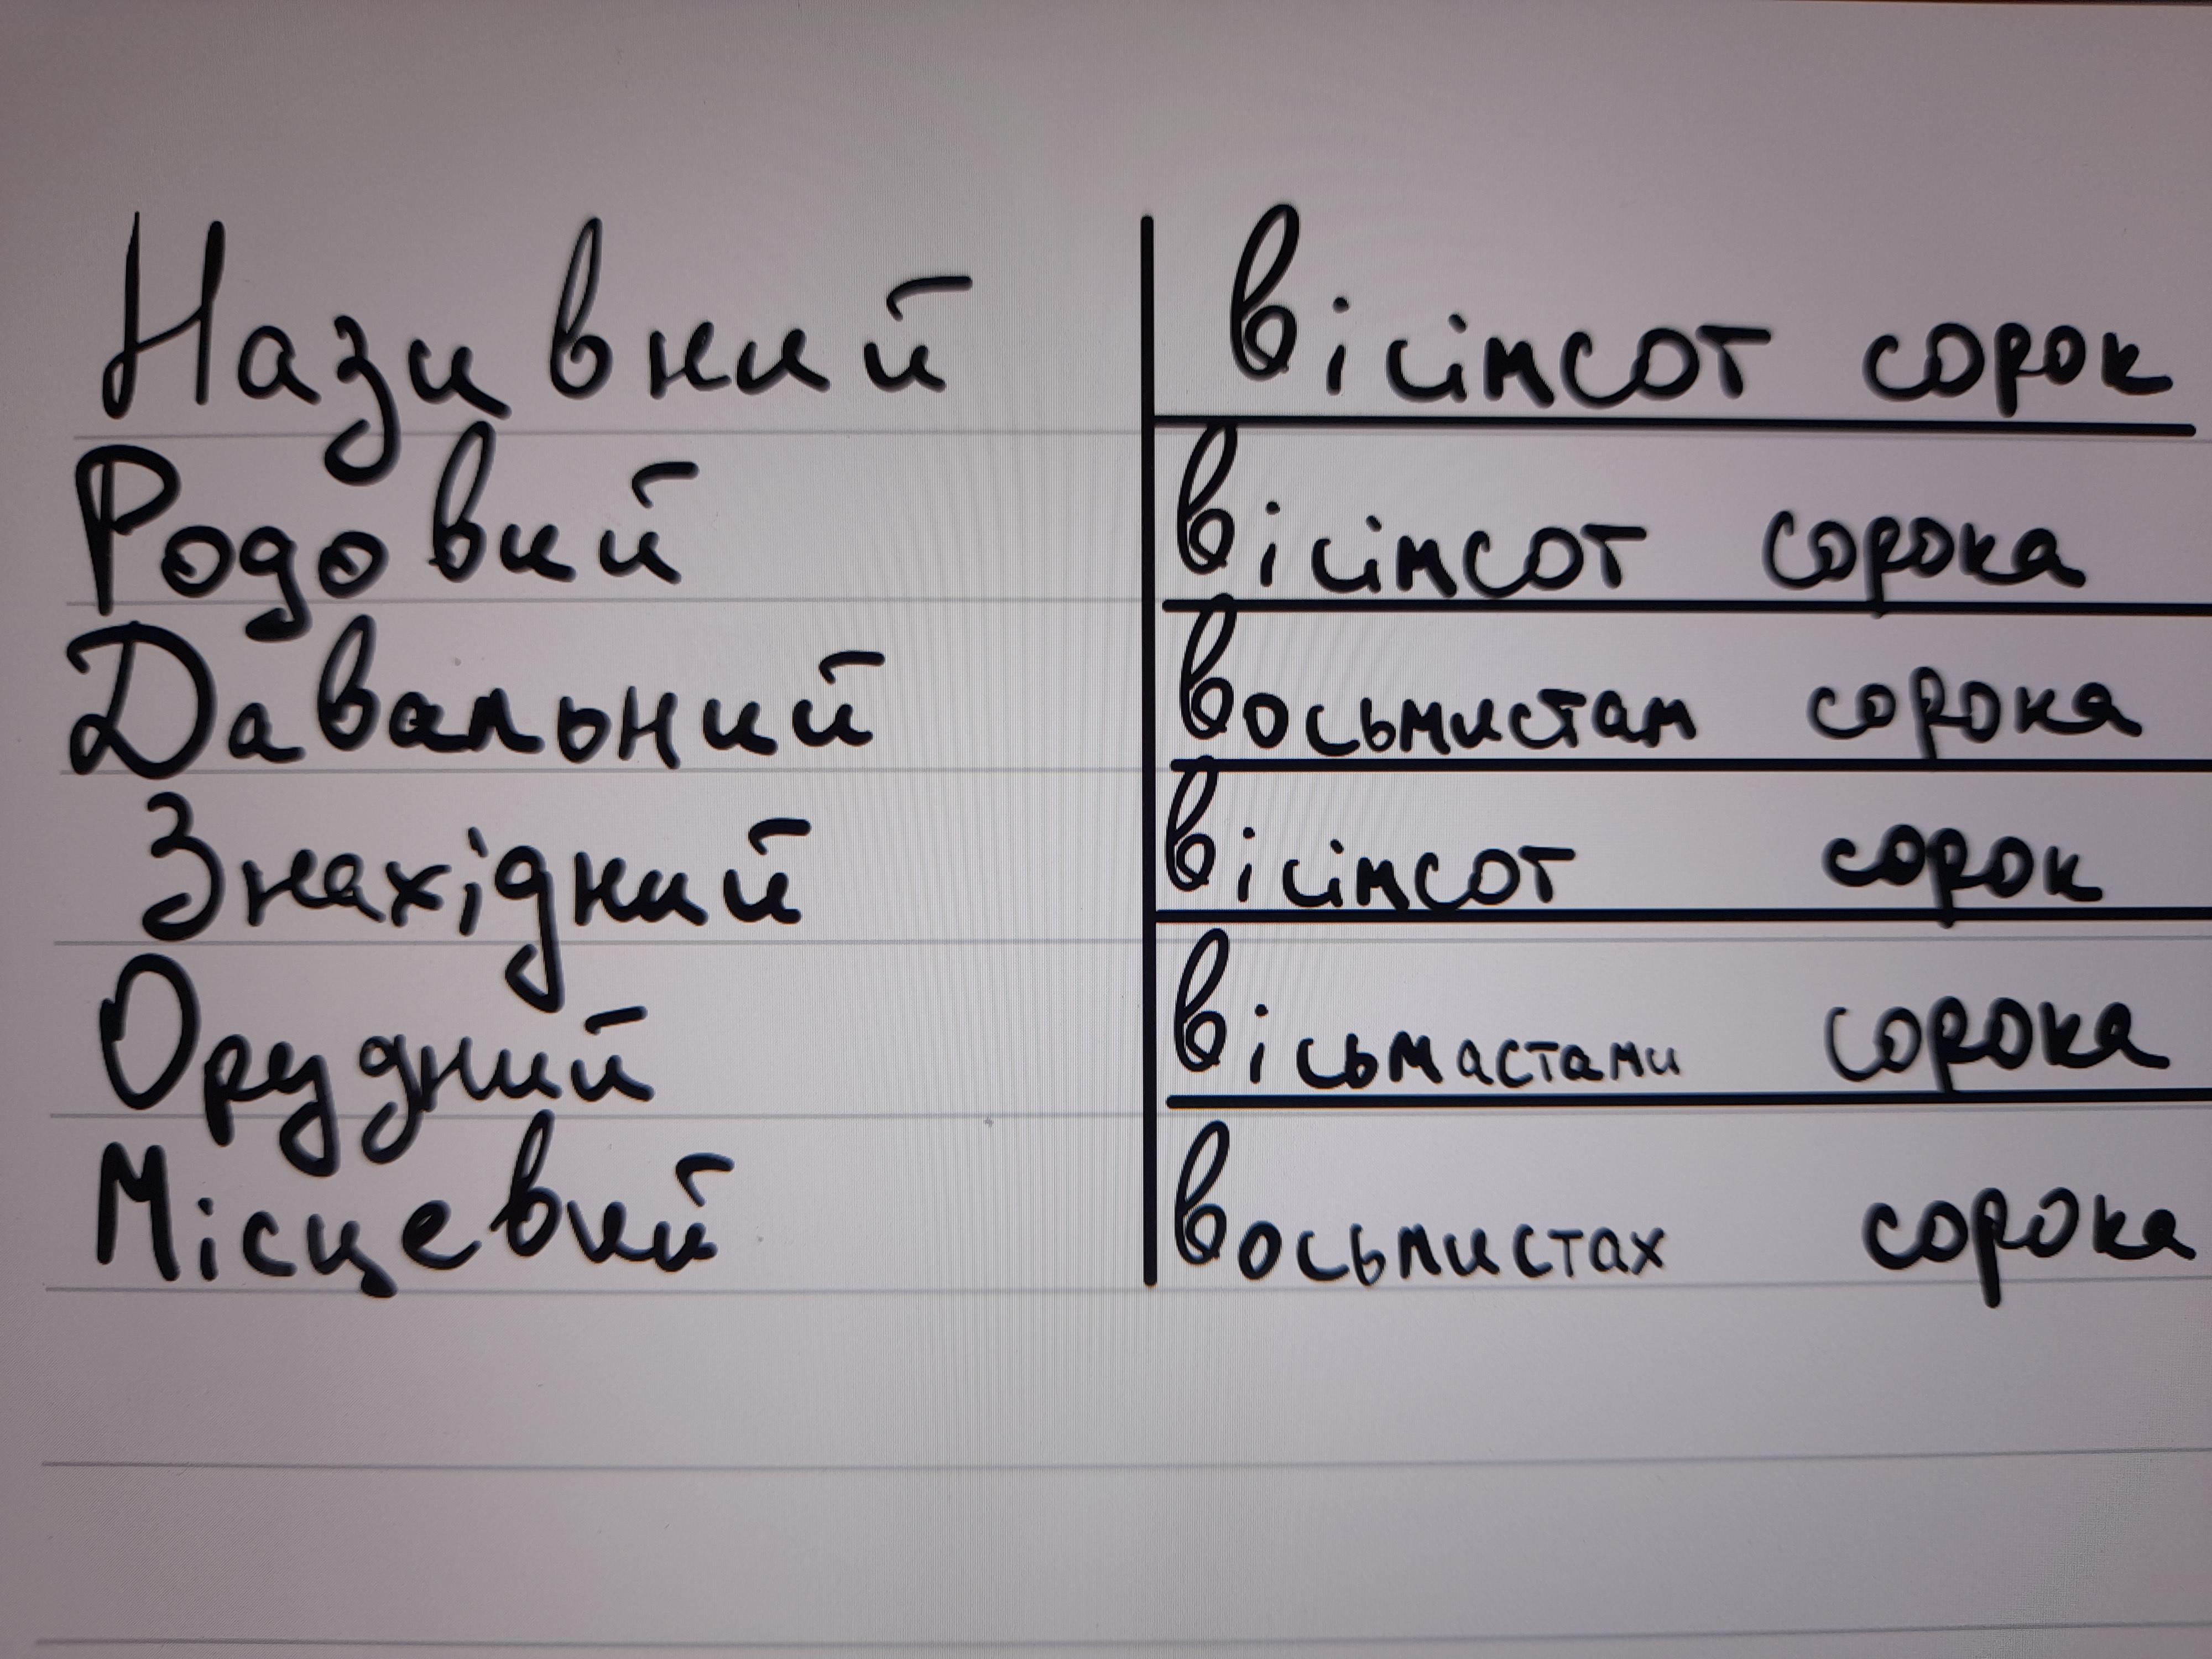 Називний вісімсот сорок
Родовий вісімсот сорока
Давальний восьмистам сорока
Знахідний вісімсот сорок
Орудний вісьмастами сорока
Місцевий восьмистах сорока